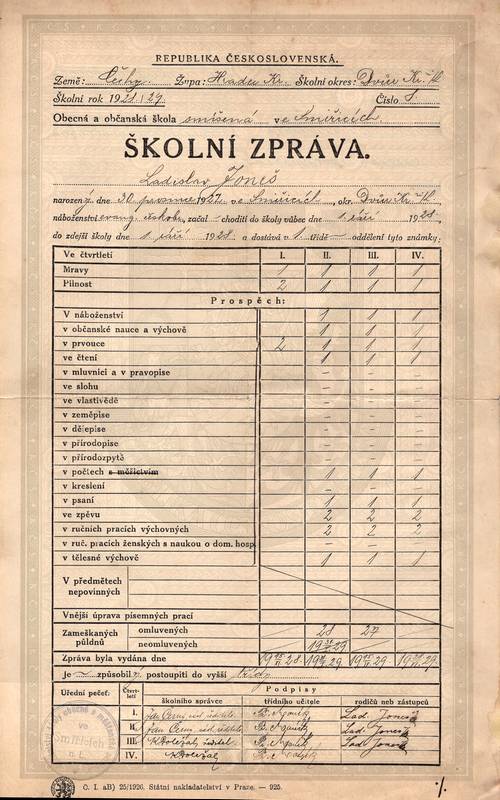 REPUBLIKA ČESKOSLOVENSKÁ.
Země: Čechy. Župa: Hradec Kr. Školní okres: Dvůr Kr. n/L
Školní rok 1928/29. Číslo
Obecná a občanská škola smíšená ve Smiřicích.
ŠKOLNÍ ZPRÁVA.
Ladislav Joneš
narozený dne 30. 19 ve Smiřicích, okr. Dvůr Kr. n/L
náboženství evang. , začal choditi do školy vůbec dne 1. září 1928.
do zdejší školy dne 1. září 1928 a dostává v 1. třídě — oddělení tyto známky:
Ve čtvrtletí I. II. III. IV.
Mravy 1 1 1 1
Pilnost 2 1 1 1
Prospěch:
V náboženství 1 1 1
v občanské nauce a výchově 1 1 1
v prvouce 2 1 1 1
ve čtení 1 1 1
v mluvnici a v pravopise – – –
ve slohu – – –
ve vlastivědě – – –
v zeměpise – – –
v dějepise – – –
v přírodopise – – –
v přírodozpytě – – –
v počtech s měřictvím 1 1 1
v kreslení – – –
v psaní 1 1 1
ve zpěvu 2 2 2
v ručních pracích výchovných 2 2 2
v ruč. pracích ženských s naukou o dom. hosp. – – –
v tělesné výchově 1 1 1
V předmětech nepovinných
Vnější úprava písemných prací
Zameškaných půldnů
omluvených 28 27
neomluvených
Zpráva byla vydána dne 28. 29 29 29
Je způsobilý postoupiti do vyšší třídy
Úřední pečeť: Čtvrtletí Podpisy
školního správce třídního učitele rodičů neb zástupců
I. Jan Černý Lad. Joneš
II. Jan Černý Lad. Joneš
III. K. Doležal, Lad. Joneš
IV. K. Doležal
ve Smiřicích n. L.
Č. I. aB) 25/1926. Státní nakladatelství v Praze. — 925.